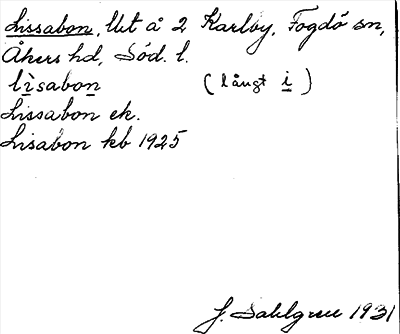 Lissabon, lht å 2 Karlby, Fogdö sn,
Åkers hd, Söd. l.
lìsabon (långt i)
Lissabon ek.
Lisabon kb 1925
J. Sahlgren 1931